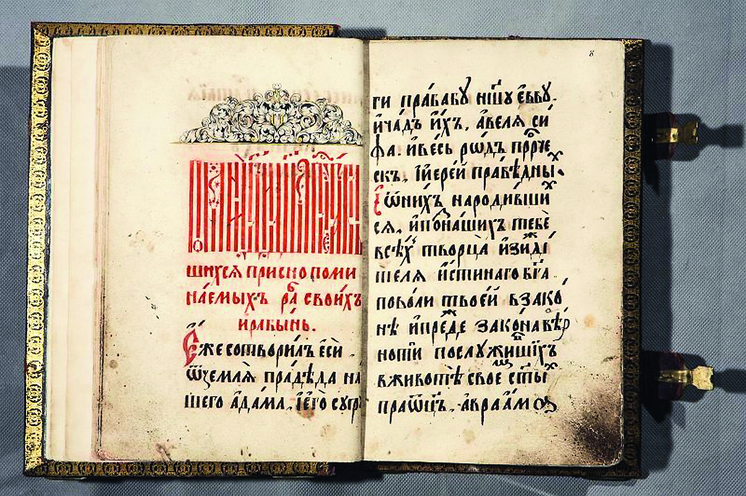 шихся присно поми
наемыхъ ра҃ своихъ
ирабынь.
Е҆же сотворилъ е҆си
ѿземля прадѣда на
шего а҆дама, ие҆го супр
8
ги прабабу н҃шу е҆ѵву.
и҆чадъ и҆хъ, а҆веля си
фа. и҆весь рѡдъ прⷪ҇рче
скъ. І҆і҆ерей праведныⷯ
Ѿнихъ народивши
ся. и҆понашихъ тебе
всѣⷯ творца и҆зиди
теля и҆стинаго бг҃а.
поволи твоей взако
нѣ и҆преⷤде законавѣⷬ
ноти послужишиⷯ
вживотѣ своеⷨ ст҃ыⷯ
праѿцъ. а҆враам